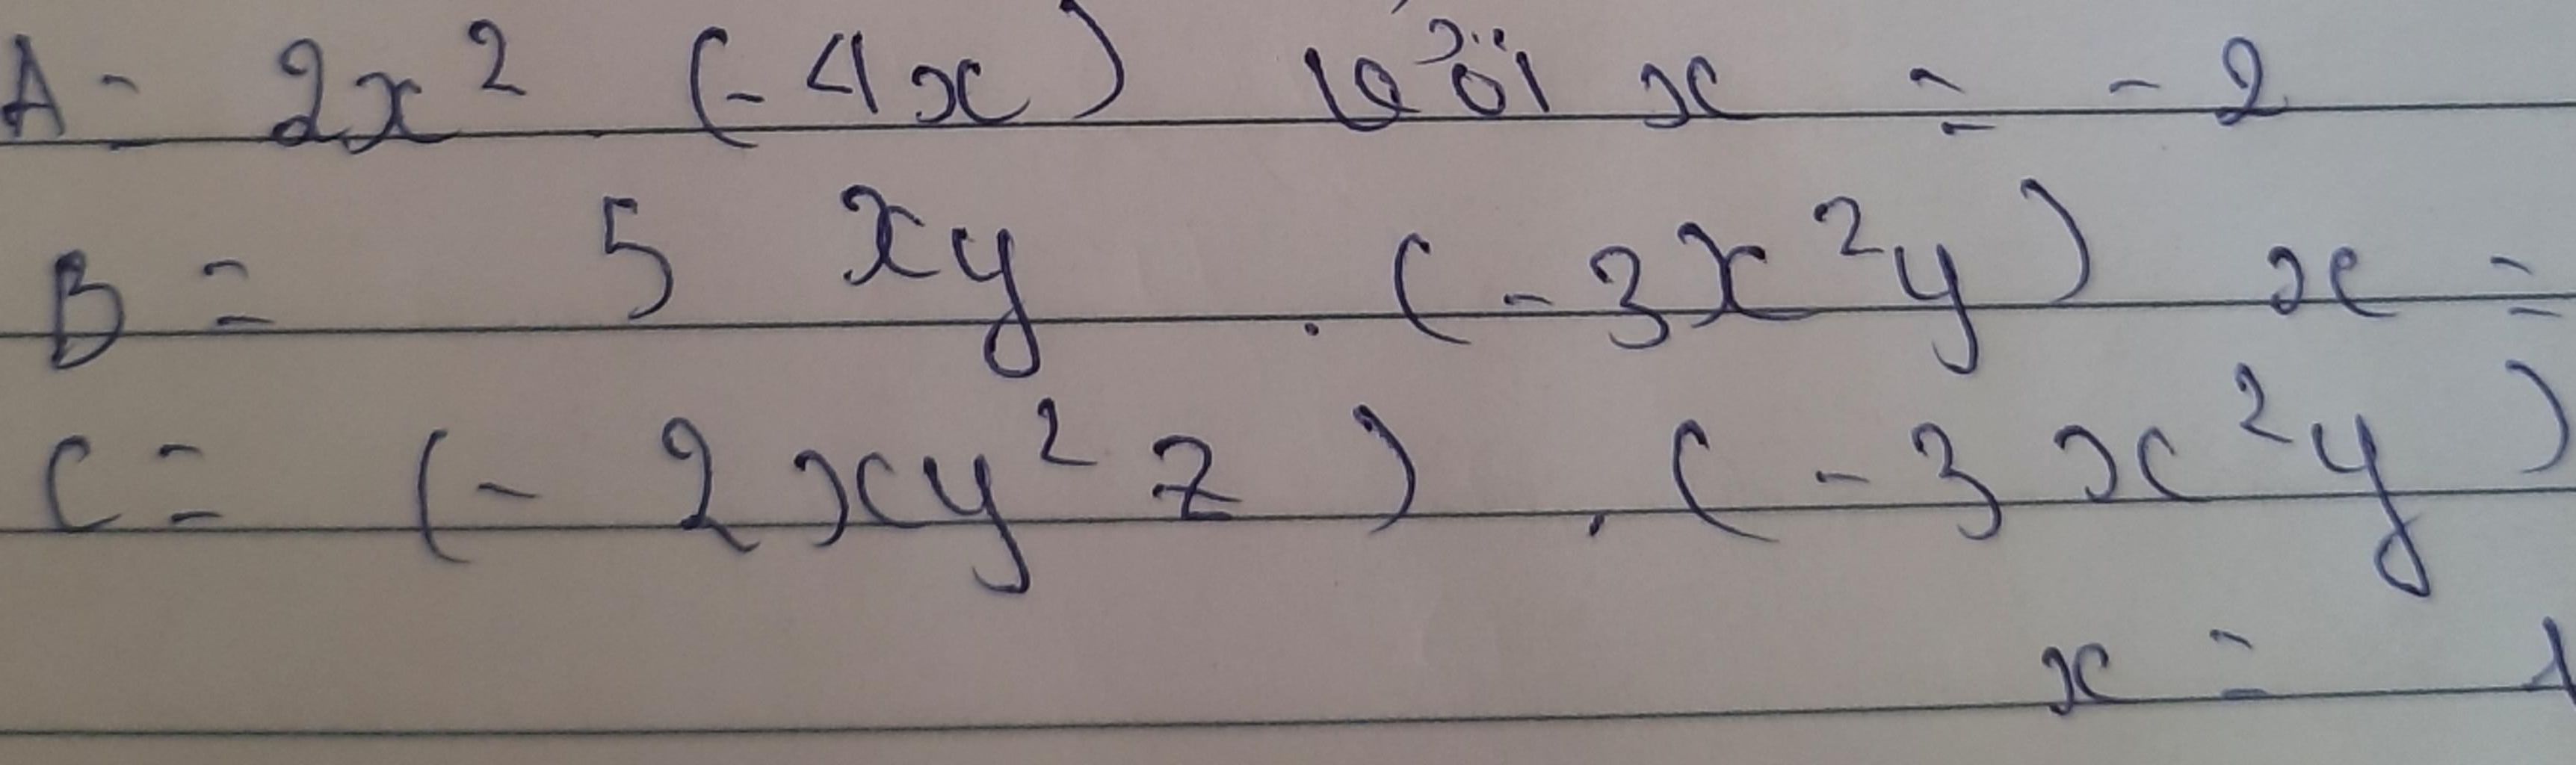 A = 2x² (-4x) với x = -2
B = 5 xy . (-3x²y) x =
C = (-2xy²z) . (-3x²y)
x = 1